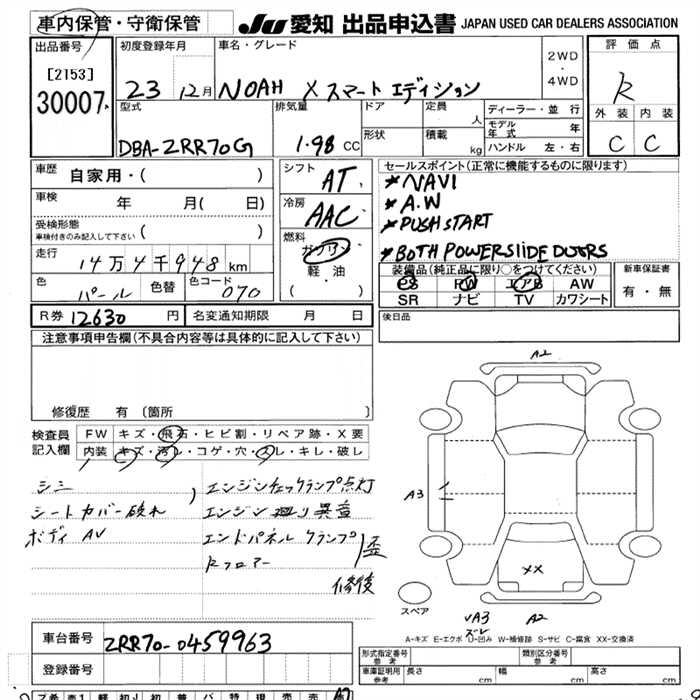 車内保管・守衛保管
JU 愛知 出品申込書 JAPAN USED CAR DEALERS ASSOCIATION
出品番号
[2153]
30007
初度登録年月
23 12月
車名・グレード
NOAH X スマートエディション
2WD
・
4WD
評価点
R
外装 内装
C C
型式
DBA-ZRR70G
排気量
1.98 CC
ドア
形状
定員 人
積載 kg
ディーラー・並行
モデル年式 年
ハンドル 左・右
車歴 自家用・( )
車検 年 月( 日)
受検形態 ( )
車検付きのみ記入して下さい
走行 14万4千948km
色 パール 色替 色コード 070
シフト AT
冷房 AAC
燃料 ガソリン
軽油
( ・ )
セールスポイント(正常に機能するものに限ります)
*NAVI
*A.W
*PUSH START
*BOTH POWERSIIDE DOORS
装備品(純正品に限り○をつけてください)
PS PW エアB AW
SR ナビ TV カワシート
新車保証書
有・無
R券 12630 円 名変通知期限 月 日
後日品
注意事項申告欄(不具合内容等は具体的に記入して下さい)
修復歴 有 (箇所 )
検査員記入欄
FW キズ・飛石・ヒビ割・リペア跡・X要
内装 キズ・汚レ・コゲ・穴・スレ・キレ・破レ
シミ
シートカバー破れ
ボディ AV
エンジンチェックランプ点灯
エンジン廻り異音
エンドパネル クランプ
Rフロアー
歪
修復
A2
A3
XX
スペア
VA3
ズレ
A2
A-キズ E-エクボ U-凹み W-補修跡 S-サビ C-腐食 XX-交換済
車台番号 ZRR70-0459963
登録番号
形式指定番号
参考
類別区分番号
参考
車庫証明用
参考
長さ cm 幅 cm 高さ cm